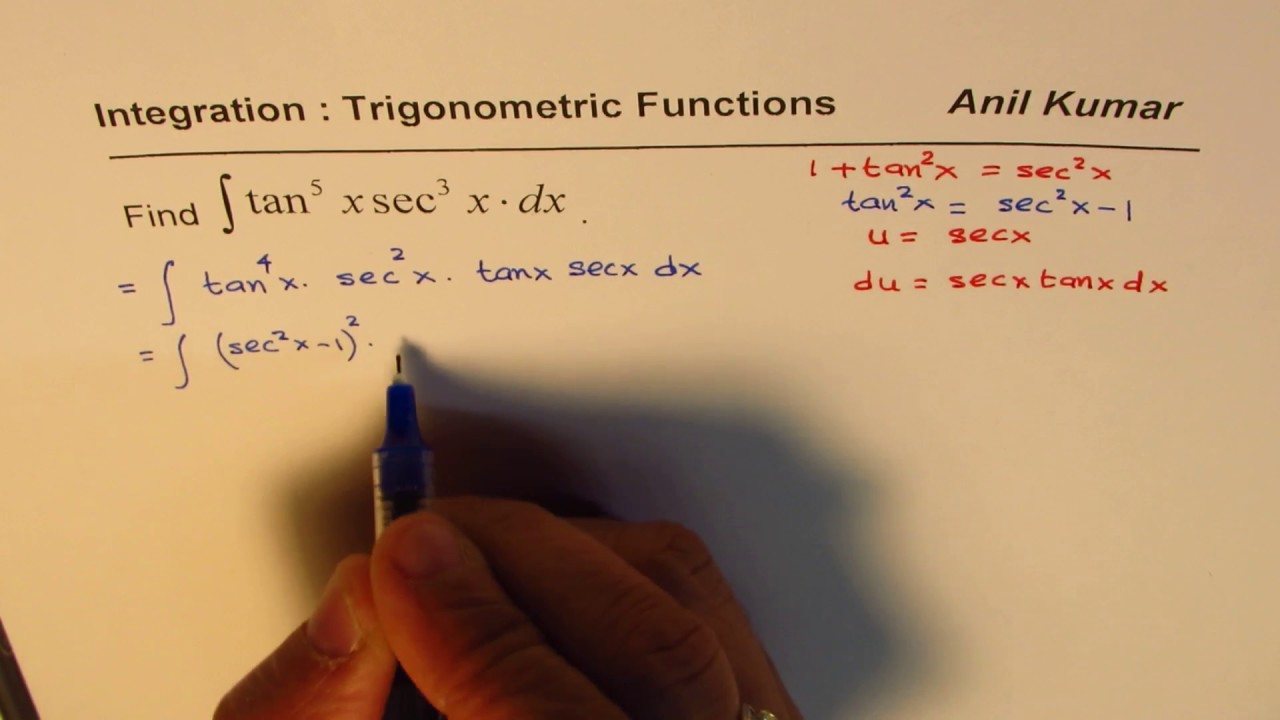 Integration : Trigonometric Functions Anil Kumar
Find ∫ tan⁵ x sec³ x · dx .
= ∫ tan⁴x. sec²x. tanx secx dx
= ∫ (sec²x-1)².
1 + tan²x = sec²x
tan²x = sec²x - 1
u = secx
du = secx tanx dx